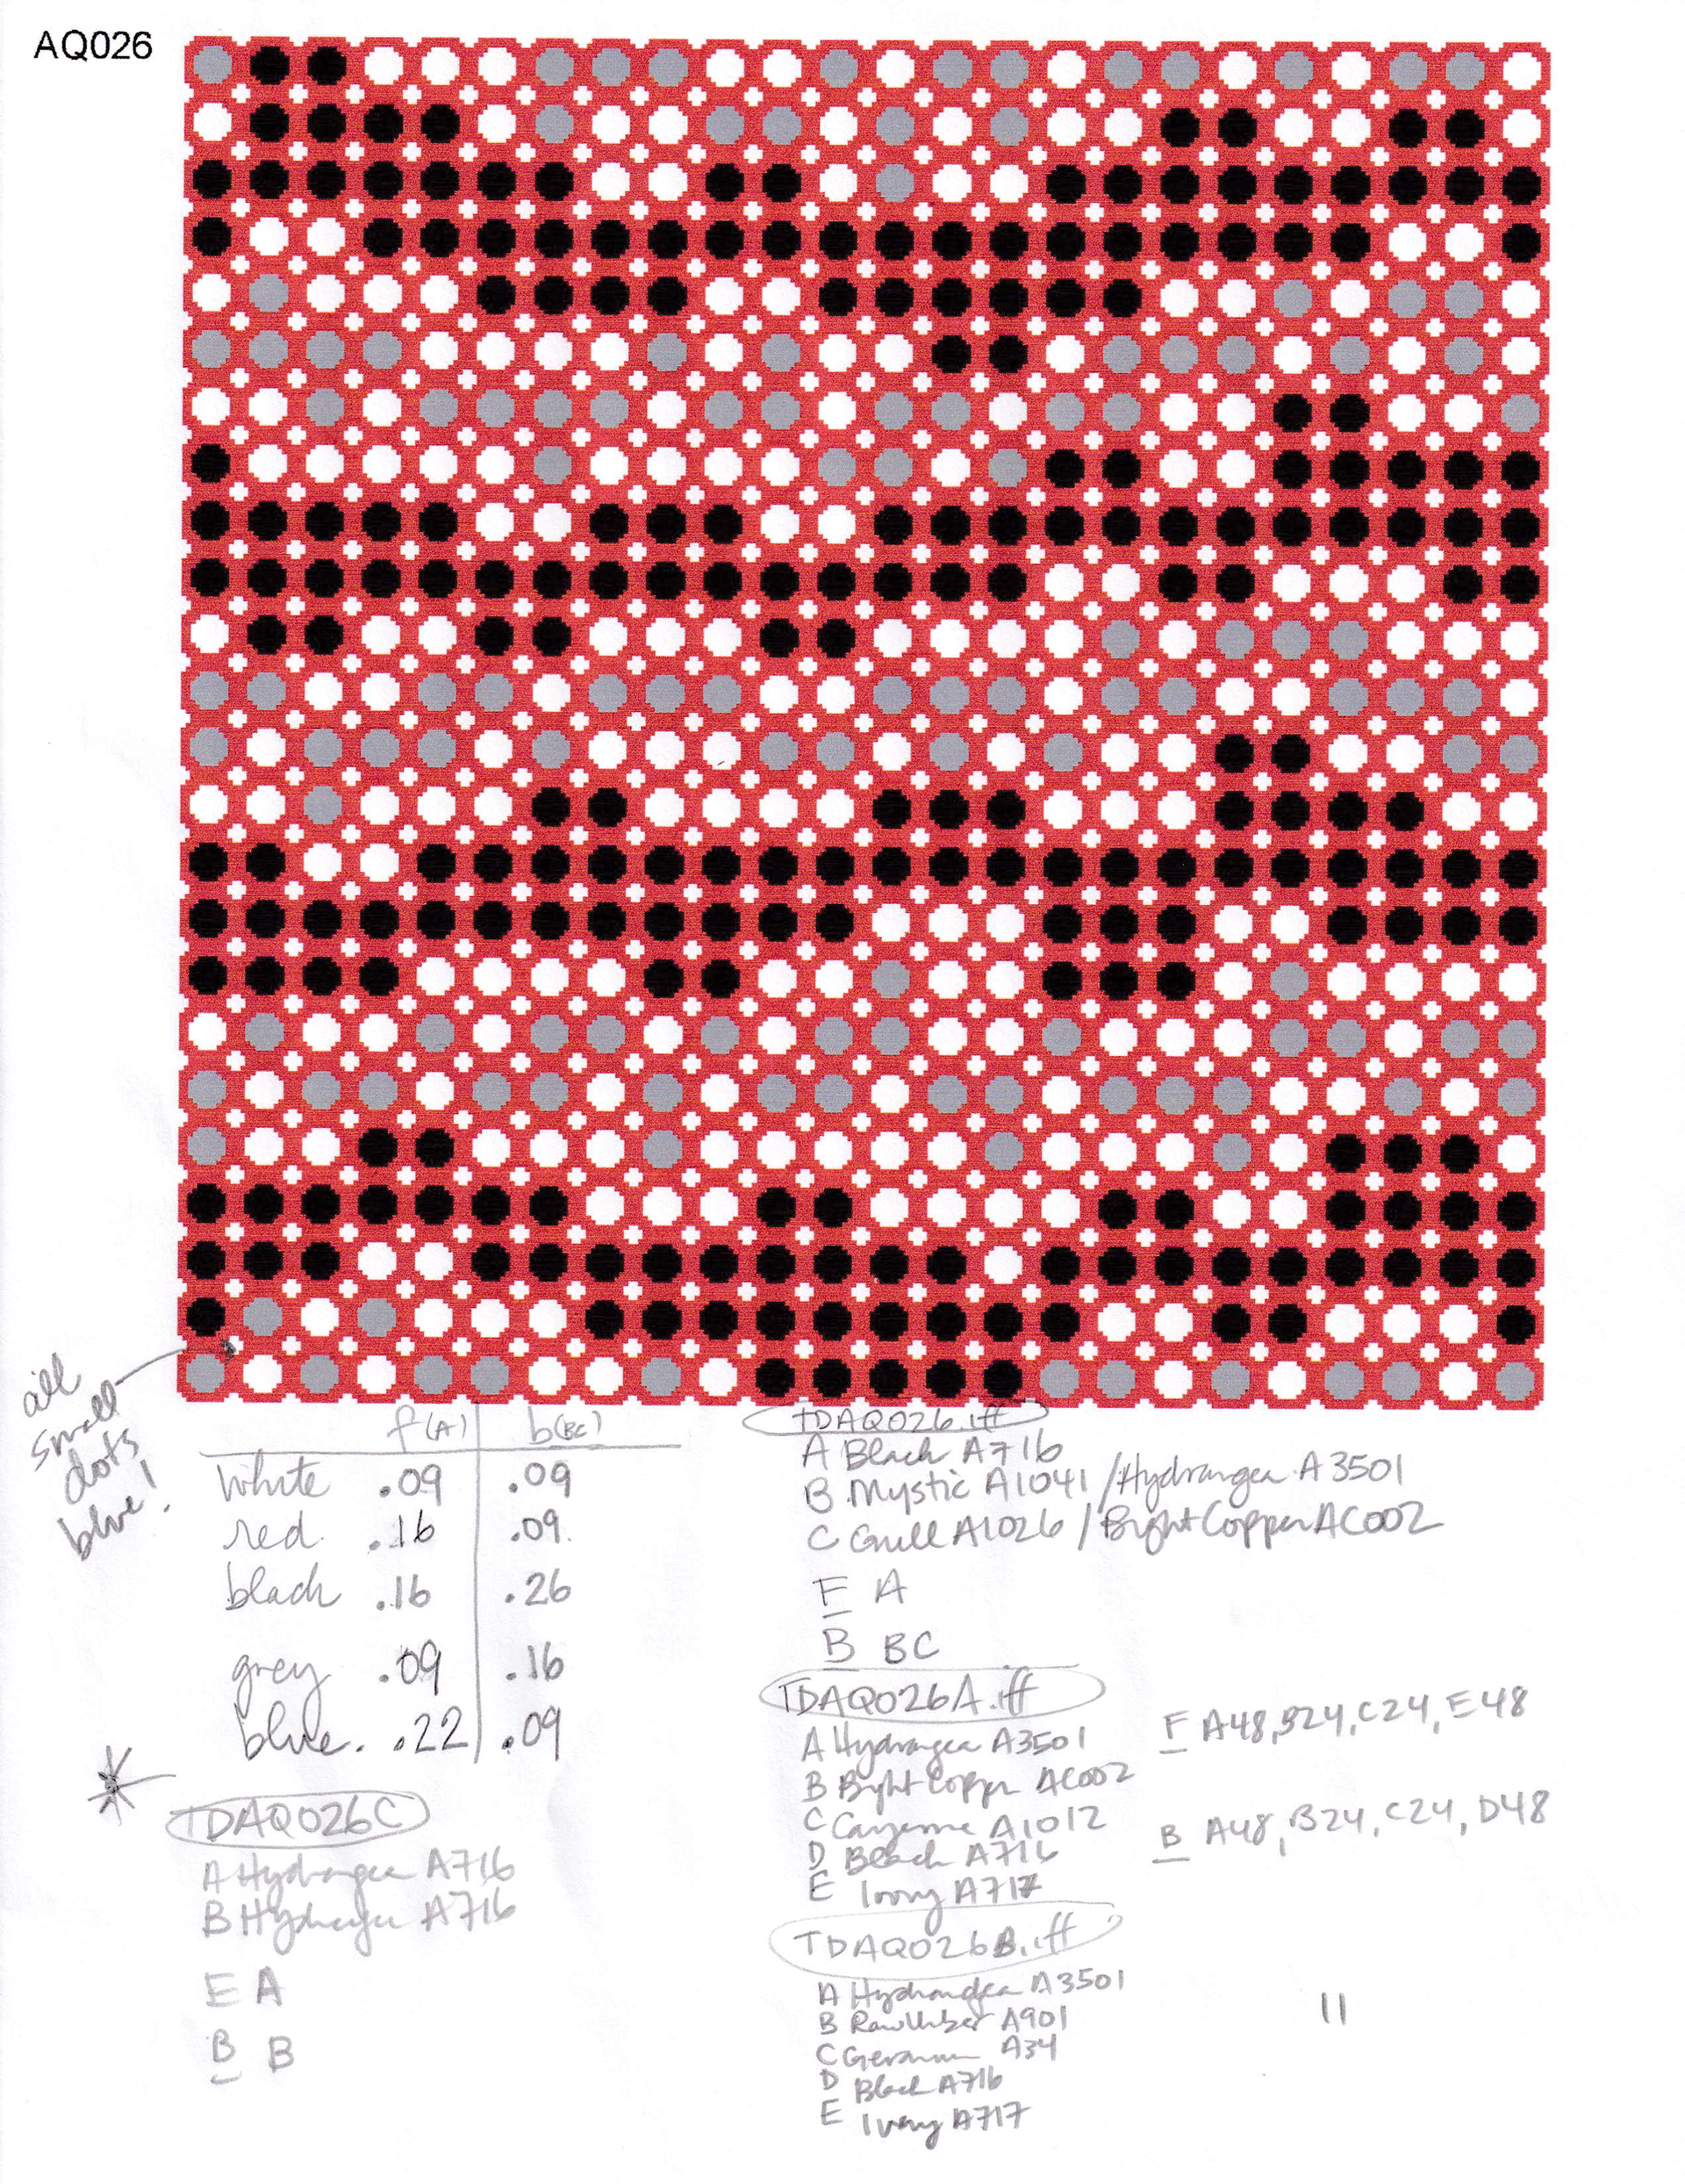 AQ026
all
small
dots
blue!
f(A) b(BC)
white .09 .09
red. .16 .09.
black .16 .26
grey .09 .16
blue. .22 .09
TDAQ026C
A Hydrangea A716
B Hydrangea A716
E A
B B
TDAQ026.iff
A Black A716
B Mystic A1041 / Hydrangea A3501
C Gull A1026 / Bright Copper AC002
F A
B BC
TDAQ026A.iff
A Hydrangea A3501
B Bright Copper AC002
C Cayenne A1012
D Black A716
E Ivory A717
F A48, B24, C24, E48
B A48, B24, C24, D48
TDAQ026B.iff
A Hydrangea A3501
B Raw Umber A901
C Geranium A34
D Black A716
E Ivory A717
11